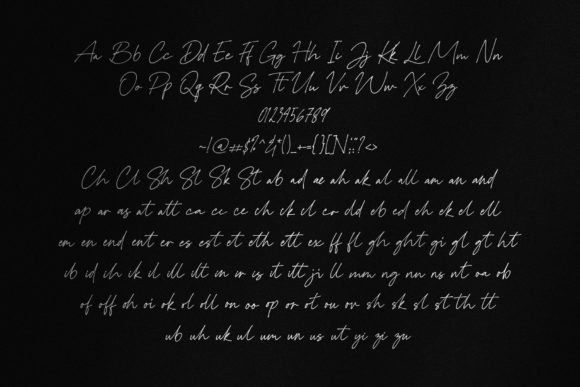 Aa Bb Cc Dd Ee Ff Gg Hh Ii Jj Kk Ll Mm Nn
Oo Pp Qq Rr Ss Tt Uu Vv Ww Xx Zz
0123456789
~!@#$%^&*()_+={}[]\:;"'?<>
Ch Cl Sh Sl Sk St ab ad ae ah ak al all am an and
ap ar as at att ca cc ce ch ck cl cr dd eb ed eh ek el ell
em en end ent er es est et eth ett ex ff fl gh ght gi gl gt ht
ib id ih ik il ill ilt in ir is it itt ji ll mm ng nn ns nt oa ob
of off oh oi ok ol oll on oo op or ot ou ov sh sk sl st th tt
ub uh uk ul um un us ut yi zi zu